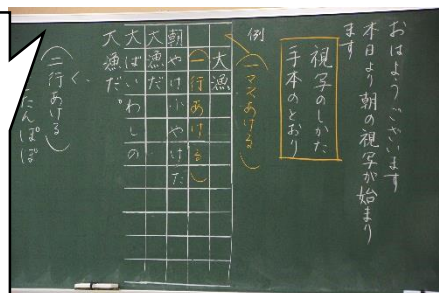 おはようございます
本日より朝の視写が始まり
ます
視写のしかた
手本のとおり
例
(一マスあける)
大漁
(一行あける)
朝やけ小やけだ
大漁だ
大ばいわしの
大漁だ。
(二行あける)
く、
たんぽぽ